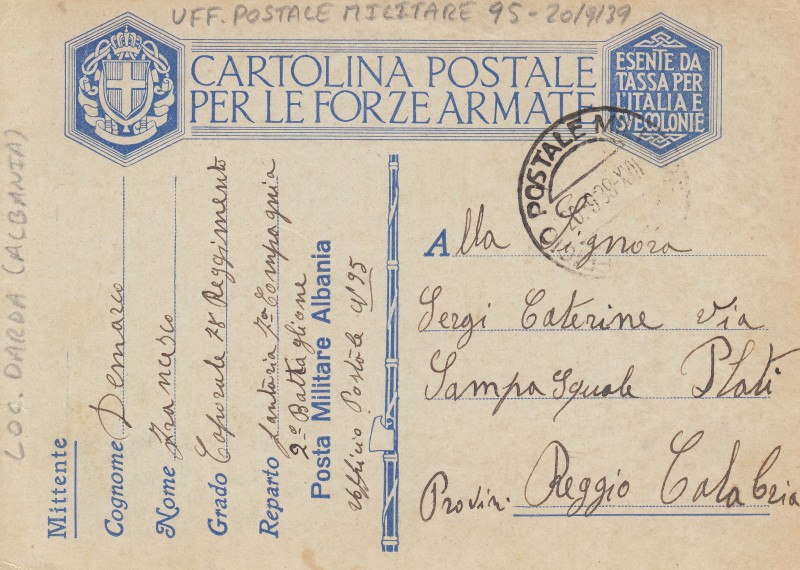 UFF. POSTALE MILITARE 95 - 20/9/39
CARTOLINA POSTALE
PER LE FORZE ARMATE
ESENTE DA
TASSA PER
L'ITALIA E
SVE COLONIE
POSTALE MIL
LOC. DARDA (ALBANIA)
Mittente
Cognome Demarco
Nome Francesco
Grado Caporale 78 Reggimento
Reparto fanteria 7a Compagnia
2o Battaglione
Posta Militare Albania
Ufficio Postale No 95
Alla Signora
Sergi Caterine via
Sampasquale Plati
Provin. Reggio Calabria